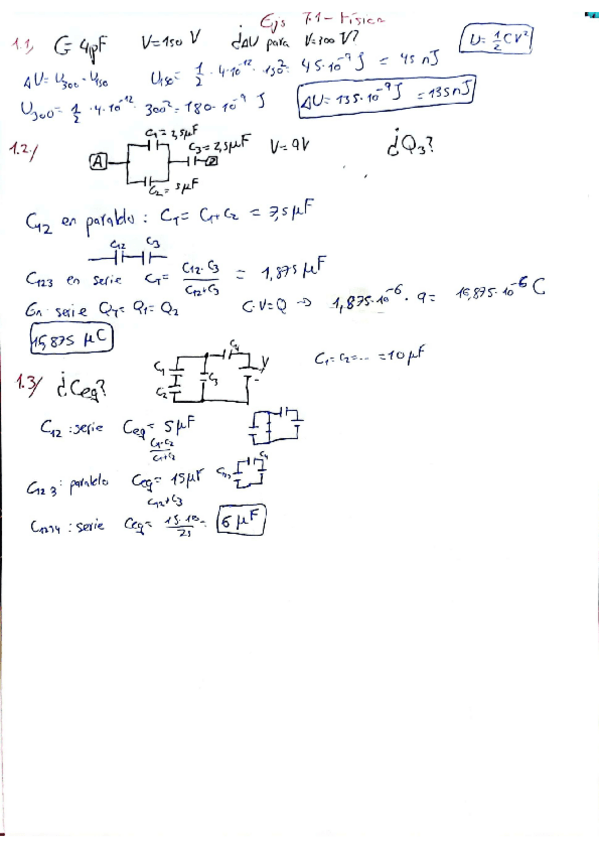 Ejs 7.1 - Física
1.1/ C= 4pF V=150 V ¿ΔU para V=300 V? U=½CV²
ΔU= U300 - U150 U150= ½ · 4·10⁻¹² · 150² = 45·10⁻⁹ J = 45 nJ
U300= ½ · 4·10⁻¹² · 300² = 180·10⁻⁹ J ΔU= 135·10⁻⁹ J = 135 nJ
1.2/ A C1= 2,5μF C2= 5μF C3= 2,5μF B V= 9V ¿Q3?
C12 en paralelo : CT= C1+C2 = 7,5μF
C12 C3
C123 en serie CT= C12·C3 / C12+C3 = 1,875 μF
En serie QT= Q1= Q2 C·V=Q → 1,875·10⁻⁶ · 9= 16,875·10⁻⁶ C
16,875 μC
1.3/ ¿Ceq? C1 C2 C3 C4 V C1=C2=... =10μF
C12 : serie Ceq= 5μF
C1·C2 / C1+C2
C123 : paralelo Ceq= 15μF
C12+C3
C1234 : serie Ceq= 15·10 / 25 = 6 μF